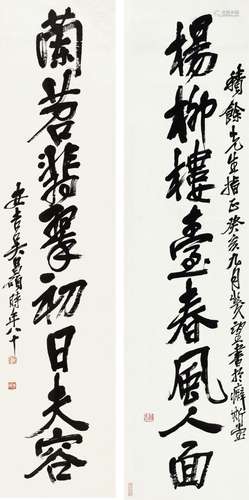 餘先生指正癸亥九月幾望書於癖斯堂
楊柳樓臺春風人面
蘭苕翡翠初日夫容
安吉吳昌碩時年八十